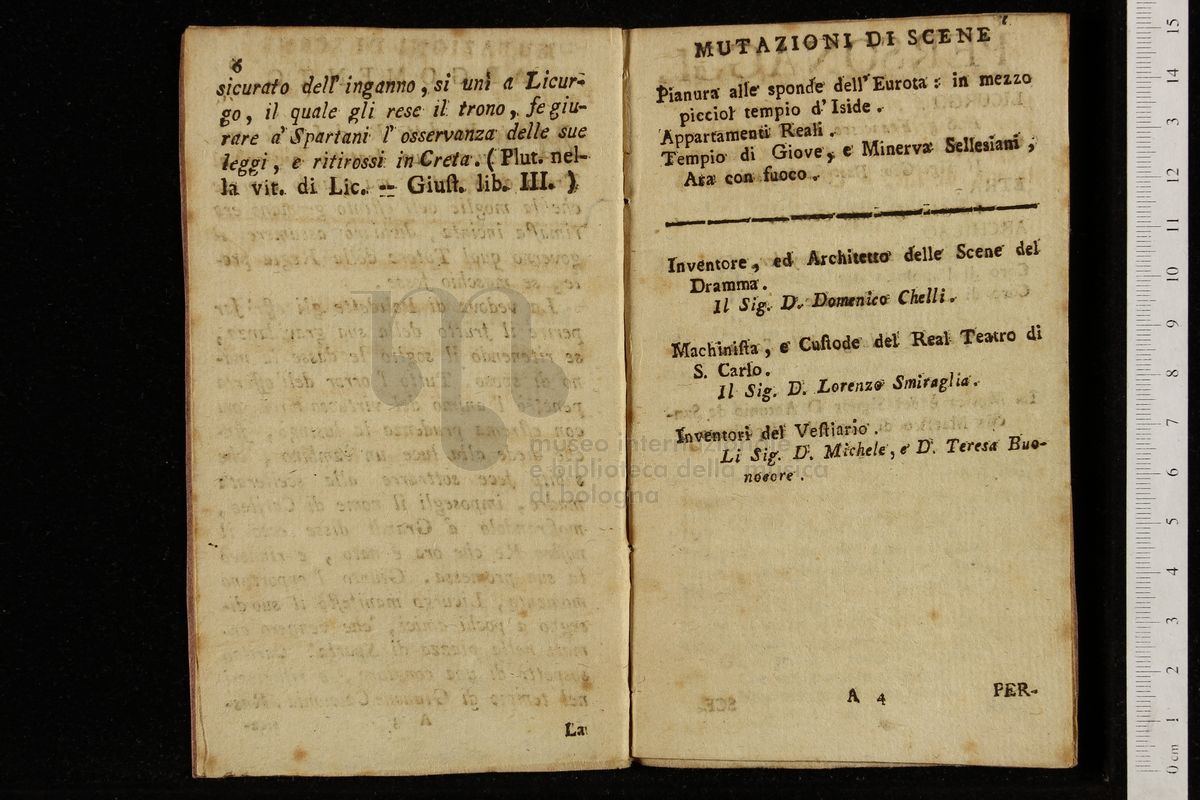 6
sicurato dell' inganno, si unì a Licur-
go, il quale gli rese il trono, fe giu-
rare a' Spartani l' osservanza delle sue
leggi, e ritirossi in Creta. (Plut. nel-
la vit. di Lic. -- Giuſt. lib. III. )
La
7
MUTAZIONI DI SCENE
Pianura alle sponde dell' Eurota: in mezzo
picciol tempio d' Iside.
Appartamenti Reali.
Tempio di Giove, e Minerva Sellesiani,
Ara con fuoco.
Inventore, ed Architetto delle Scene del
Dramma.
Il Sig. D. Domenico Chelli.
Machiniſta, e Cuſtode del Real Teatro di
S. Carlo.
Il Sig. D. Lorenzo Smiraglia.
Inventori del Veſtiario.
Li Sig. D. Michele, e D. Teresa Buo-
nocore.
A 4
PER-
museo internazionale
e biblioteca della musica
di bologna
0 cm 1 2 3 4 5 6 7 8 9 10 11 12 13 14 15